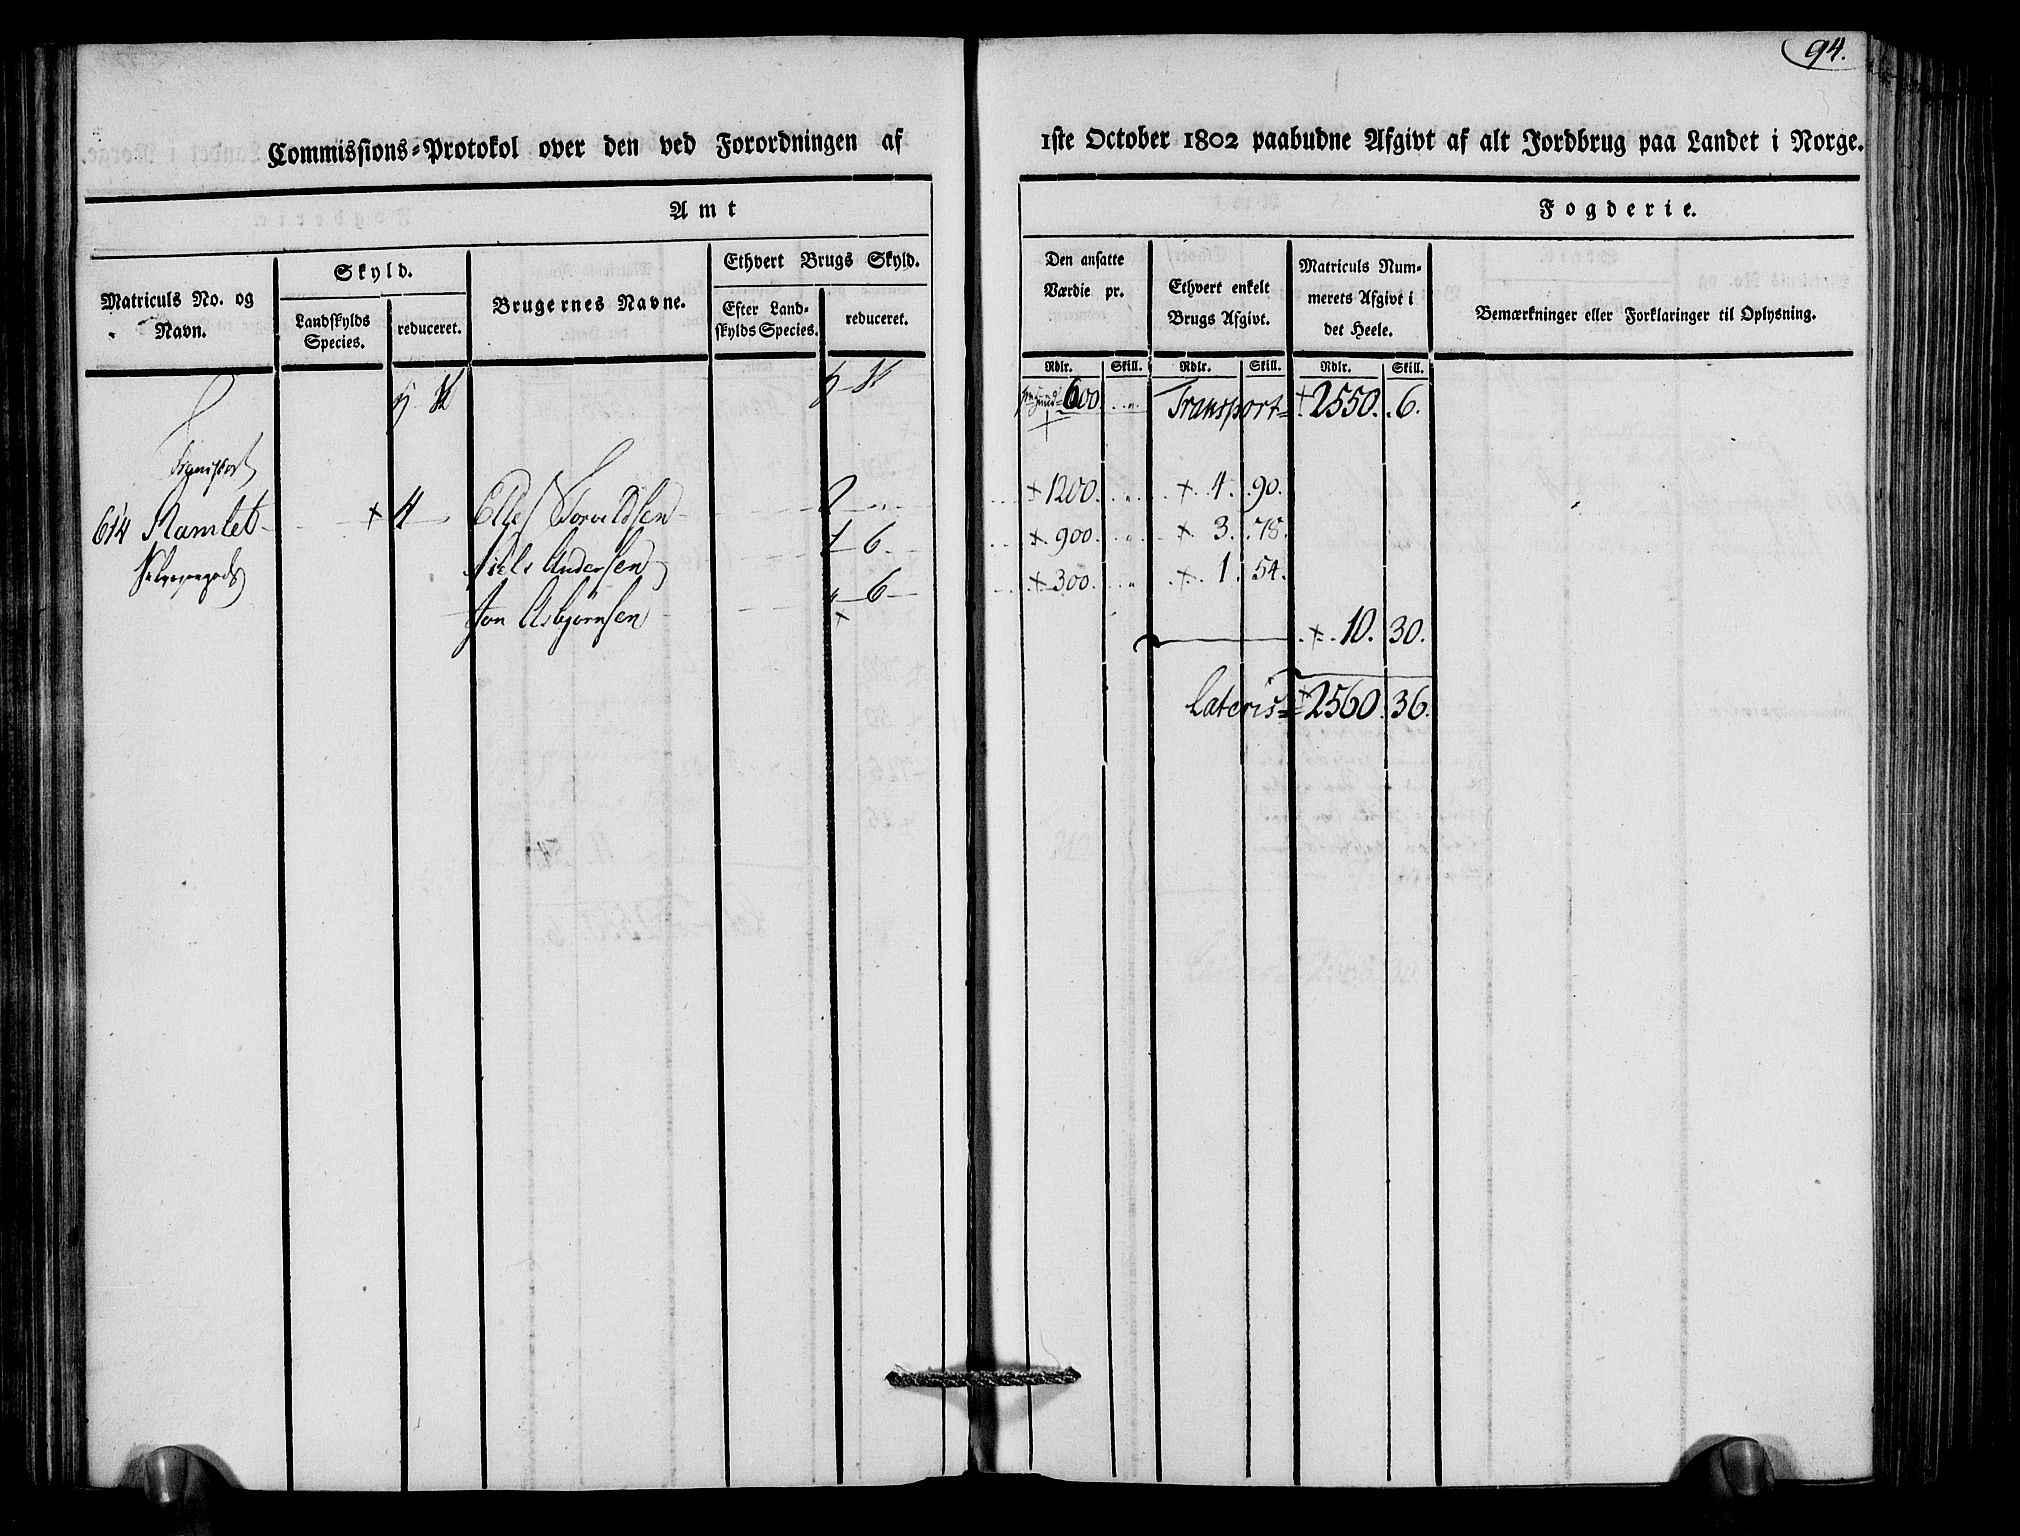 94.
Commissions-Protokol over den ved Forordningen af 1ste October 1802 paabudne Afgivt af alt Jordbrug paa Landet i Norge.
Amt Fogderie.
Matriculs No. og Navn.
Skyld.
Landskylds Species.
reduceret.
Brugernes Navne.
Ethvert Brugs Skyld.
Efter Land-
skylds Species.
reduceret.
Den ansatte
Værdie pr.
Ethvert enkelt
Brugs Afgivt.
Matriculs Num-
merets Afgivt i
det Heele.
Bemærkninger eller Forklaringer til Oplysning.
Rdlr. Skill. Rdlr. Skill. Rdlr. Skill.
600. Transport 2550. 6.
Transport
614 Ramlet + 4 Toruldsen 2 + 1200. " + 4. 90.
Niels Andersen 1 6 + 900. " + 3. 78.
Jon Asbjørnsen " 6 + 300. " + 1. 54.
+ 10. 30.
Lateris + 2560. 36.